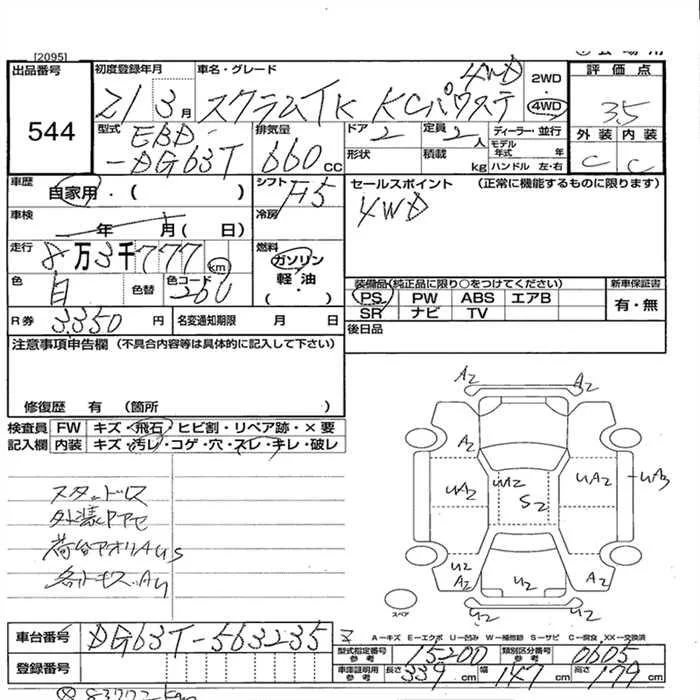 [2095]
出品番号
544
初度登録年月
21 3月
車名・グレード
4WD
スクラムTK KCパワステ
2WD
・
4WD
評価点
3.5
外装 内装
C C
型式
EBD-
-DG63T
排気量
660cc
ドア
2
定員
2人
ディーラー・並行
モデル年式 年
形状
積載 kg
ハンドル 左・右
車歴
自家用・( )
シフト
F5
セールスポイント (正常に機能するものに限ります)
4WD
車検
年 月( 日)
冷房
走行
8万3千777km
燃料
ガソリン
軽油
( )
色
白
色替
色コード
26U
装備品(純正品に限り○をつけてください)
新車保証書
PS PW ABS エアB
SR ナビ TV
有・無
R券
3350円
名変通知期限 月 日
後日品
注意事項申告欄(不具合内容等は具体的に記入して下さい)
修復歴 有 (箇所 )
検査員
記入欄
FW キズ・飛石・ヒビ割・リペア跡・×要
内装 キズ・汚レ・コゲ・穴・スレ・キレ・破レ
スタッドレス
外装
荷台アオリAUS
A2 A2
A2
UA2 UA2 S2 UA2 UA3
U2
A2 U2 A2
U2 U2
スペア
A-キズ E-エクボ U-凹み W-補修跡 S-サビ C-腐食 XX-交換済
車台番号
DG63T-563235
型式指定番号
参考
15200
類別区分番号
参考
0605
登録番号
車庫証明用
参考
長さ 339cm
幅 147cm
高さ 179cm